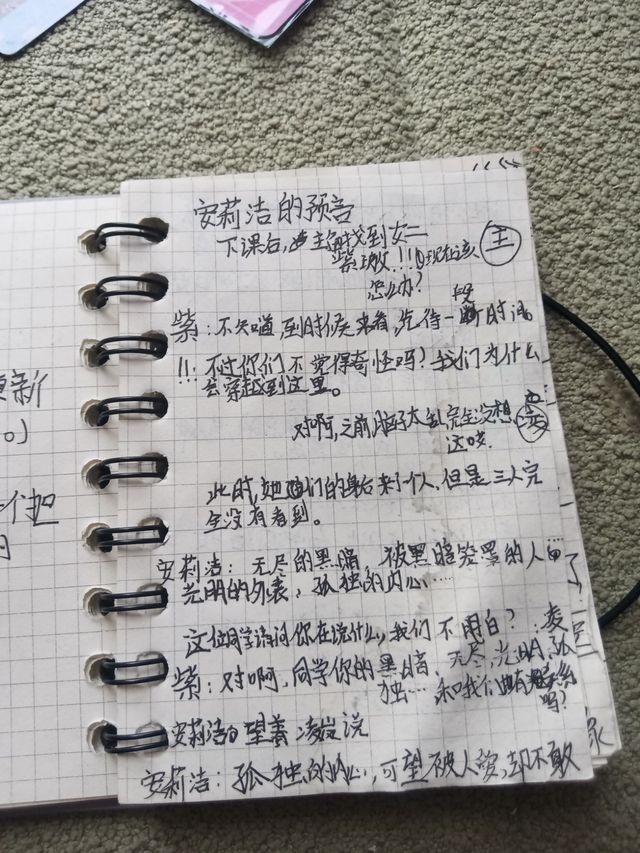 安莉洁的预告
下课后，主角找到女二
紫上攸！！！现在该 王
怎么办？
紫：不知道，到时候来看，先待一段时间
！！不过你们不觉得奇怪吗？我们为什么
会穿越到这里。
对啊，之前脑子太乱完全没想
这哎
此时，她们的身后来了个人，但是三人完
全没有看到。
安莉洁：无尽的黑暗，被黑暗笼罩的人
光明的外表，孤独的内心……
这位同学请问你在说什么，我们不明白？ 凌
紫：对啊，同学你的黑暗，无尽，光明，孤
独… 和我们有关系
吗？
安莉洁望着凌说
安莉洁：孤独的内心，可望被人爱，却不敢
新
。）
一个把
了